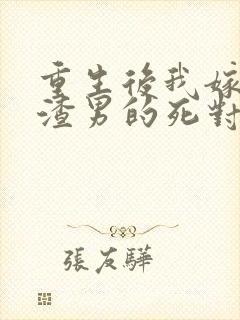 重生後我嫁
渣男的死對
張友驊